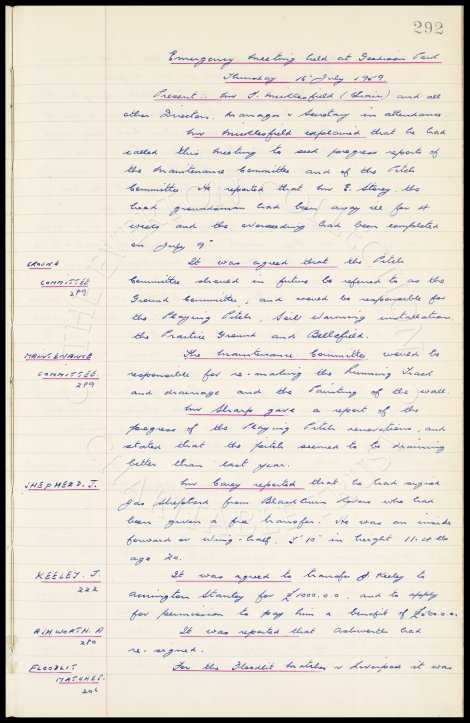 292
Emergency meeting held at Goodison Park
Thursday 16 July 1959
Present: Mr T. Micklesfield (Chair) and all
other Directors. Manager & Secretary in attendance
Mr Micklesfield explained that he had
called this meeting to seek progress reports of
the Maintenance Committee and of the Pitch
Committee. He reported that Mr E. Storey, the
head groundsman had been away ill for 4
weeks and the overseeding had been completed
on July 9th
GROUND
COMMITTEE
289
It was agreed that the Pitch
Committee should in future be referred to as the
Ground Committee, and would be responsible for
the Playing Pitch, Soil Warming installation,
the Practice Ground and Bellefield.
MAINTENANCE
COMMITTEE
289
The Maintenance Committee would be
responsible for re-making the Running Track
and drainage and the Painting of the wall.
Mr Sharp gave a report of the
progress of the Playing Pitch renovations, and
stated that the pitch seemed to be draining
better than last year.
SHEPHERD. J.
Mr Carey reported that he had signed
Jas Shepherd from Blackburn Rovers who had
been given a free transfer. He was an inside
forward or wing-half, 5'10" in height 11.4 lbs
age 20.
KEELEY. J.
222
It was agreed to transfer J Keeley to
Accrington Stanley for £1000.0.0. and to apply
for permission to pay him a benefit of
ASHWORTH. A
280
It was reported that Ashworth had
re-signed.
FLOODLIT
MATCHES.
206
For the Floodlit Matches v Liverpool it was
THE EVERTON COLLECTION
CHARITABLE TRUST